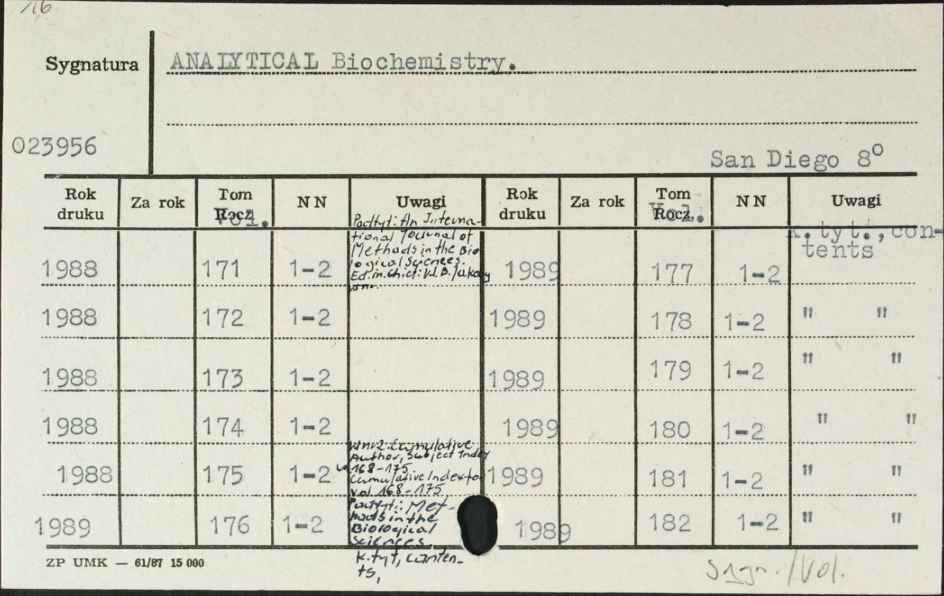 116
Sygnatura ANALYTICAL Biochemistry.
023956
San Diego 8°
Rok druku Za rok Tom Rocz. Vol. NN Uwagi Rok druku Za rok Tom Rocz. Vol. NN Uwagi
1988 171 1-2 Podtyt: An International Journal of Methods in the Biological Sciences. Ed. in. chief: W.B. 1989 177 1-2 k.tyt., contents
1988 172 1-2 1989 178 1-2 " "
1988 173 1-2 1989 179 1-2 " "
1988 174 1-2 1989 180 1-2 " "
1988 175 1-2 w nr 2: Cumulative Author, Subject Index 168-175 Cumulative Index to vol 168-175 1989 181 1-2 " "
1989 176 1-2 Podtyt.: Methods in the Biological Sciences. k.tyt, contents, 1989 182 1-2 " "
ZP UMK — 61/87 15 000
Sygn./Vol.